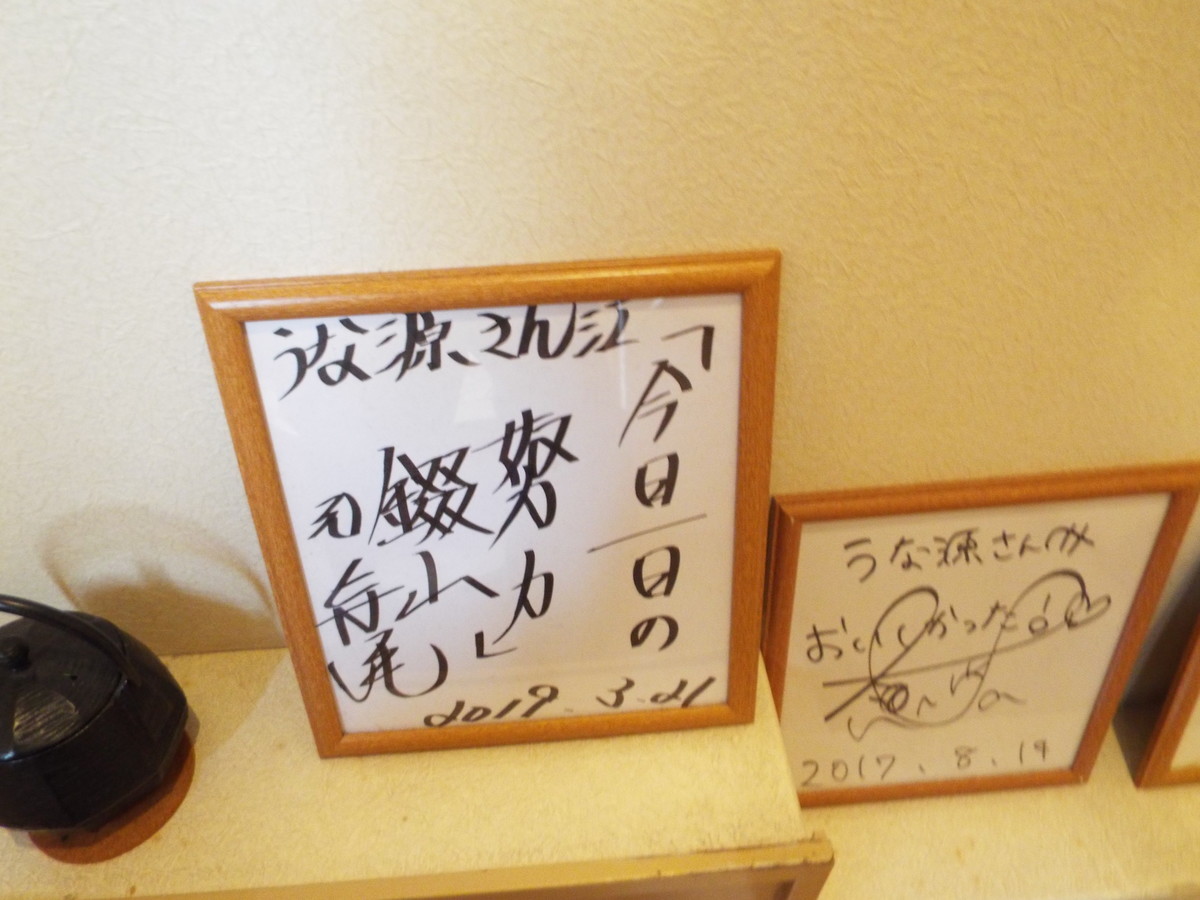 うな源さん江
「今日一日の
努力」
錣山
元寺尾
2019.3.21
うな源さんへ
おいしかったよ
2017.8.19